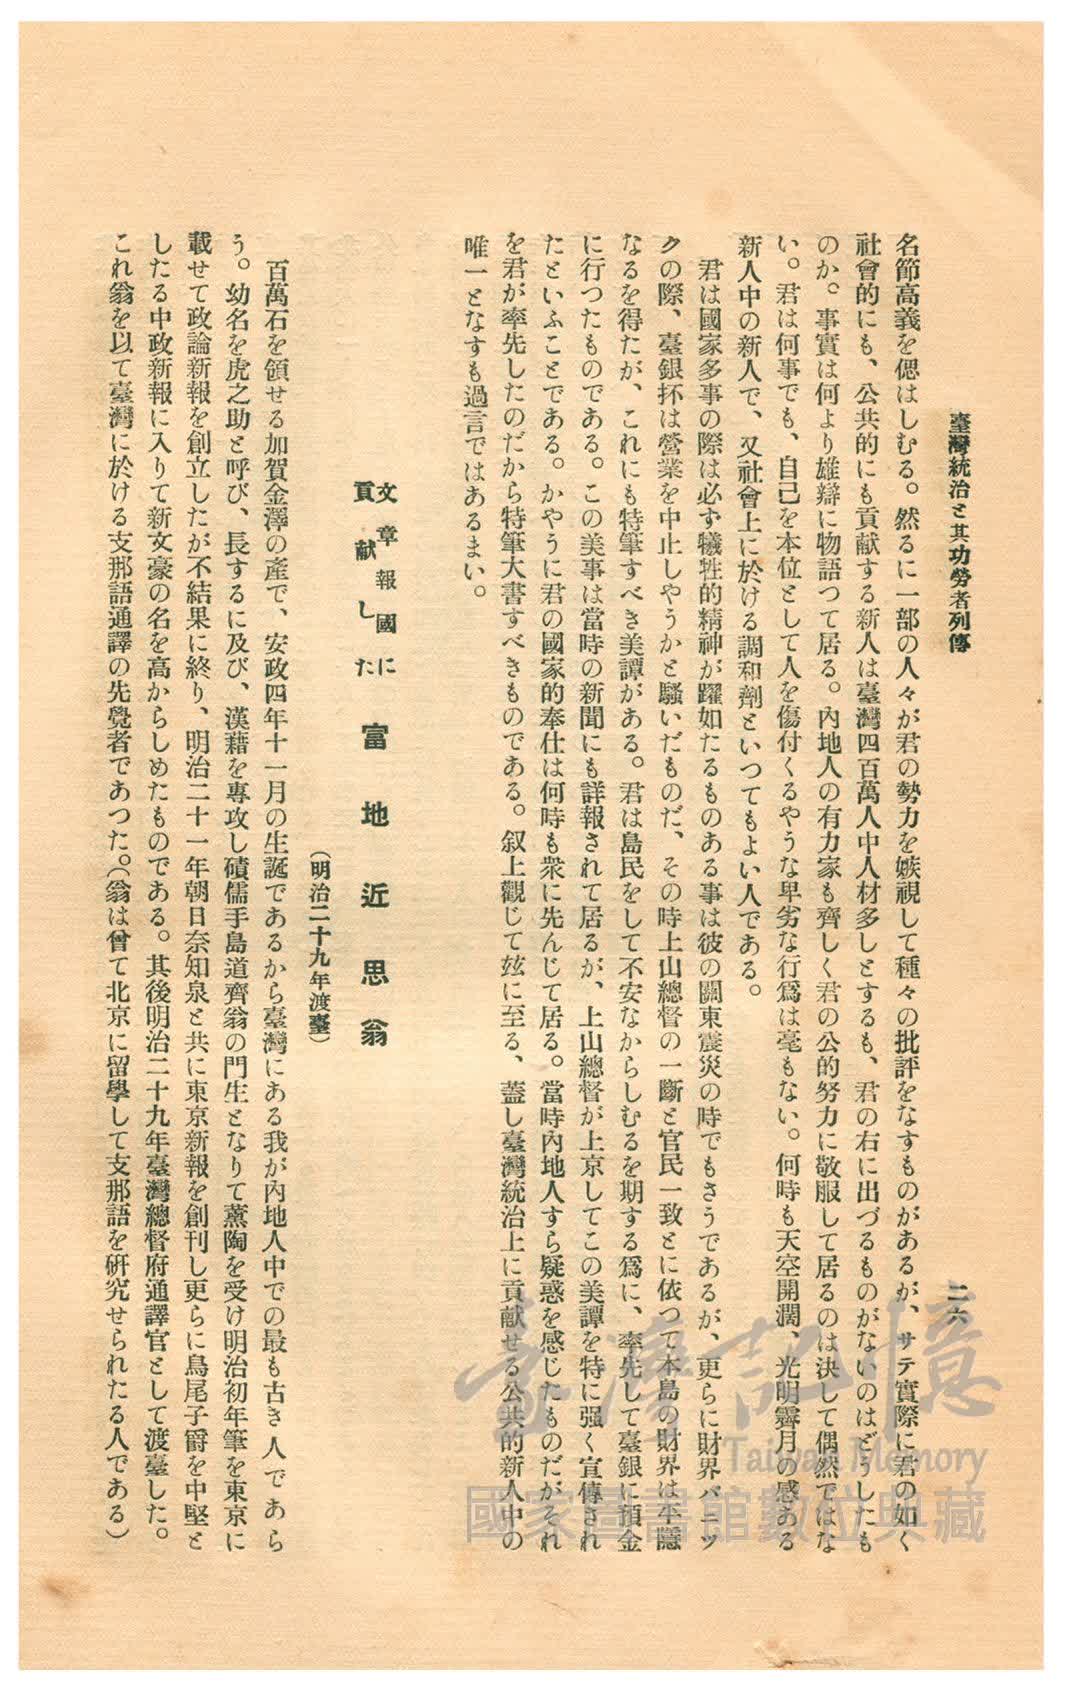 臺灣統治と其功勞者列傳
二六
名節高義を偲はしむる。然るに一部の人々が君の勢力を嫉視して種々の批評をなすものがあるが、サテ實際に君の如く
社會的にも、公共的にも貢獻する新人は臺灣四百萬人中人材多しとするも、君の右に出づるものがないのはどうしたも
のか。事實は何より雄辯に物語つて居る。內地人の有力家も齊しく君の公的努力に敬服して居るのは決して偶然ではな
い。君は何事でも、自己を本位として人を傷付くるやうな卑劣な行爲は毫もない。何時も天空開濶、光明霽月の感ある
新人中の新人で、又社會上に於ける調和劑といつてもよい人である。
君は國家多事の際は必ず犧牲的精神が躍如たるものある事は彼の關東震災の時でもさうであるが、更らに財界パニツ
クの際、臺銀抔は營業を中止しやうかと騷いだものだ、その時上山總督の一斷と官民一致とに依つて本島の財界は平隱
なるを得たが、これにも特筆すべき美譚がある。君は島民をして不安なからしむるを期する爲に、率先して臺銀に預金
に行つたものである。この美事は當時の新聞にも詳報されて居るが、上山總督が上京してこの美譚を特に强く宣傳され
たといふことである。かやうに君の國家的奉仕は何時も衆に先んじて居る。當時內地人すら疑惑を感じたものだがそれ
を君が率先したのだから特筆大書すべきものである。叙上觀じて玆に至る、蓋し臺灣統治上に貢献せる公共的新人中の
唯一となすも過言ではあるまい。
文章報國に
貢献した
富地近思翁
（明治二十九年渡臺）
百萬石を領せる加賀金澤の產で、安政四年十一月の生誕であるから臺灣にある我が內地人中での最も古き人であら
う。幼名を虎之助と呼び、長するに及び、漢藉を專攻し碩儒手島道齊翁の門生となりて薰陶を受け明治初年筆を東京に
載せて政論新報を創立したが不結果に終り、明治二十一年朝日奈知泉と共に東京新報を創刊し更らに鳥尾子爵を中堅と
したる中政新報に入りて新文豪の名を高からしめたものである。其後明治二十九年臺灣總督府通譯官として渡臺した。
これ翁を以て臺灣に於ける支那語通譯の先覺者であつた。（翁は曾て北京に留學して支那語を硏究せられたる人である）
臺灣記憶
Taiwan Memory
國家圖書館數位典藏